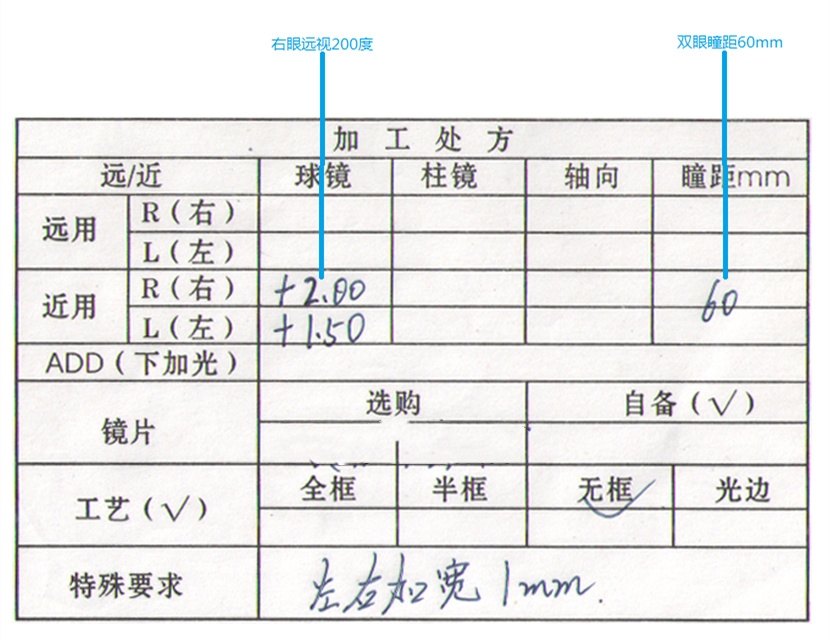 右眼远视200度 双眼瞳距60mm
加工处方
远/近 球镜 柱镜 轴向 瞳距mm
远用 R(右)
L(左)
近用 R(右) +2.00 60
L(左) +1.50
ADD(下加光)
镜片 选购 自备(√)
工艺(√) 全框 半框 无框 光边
特殊要求 左右加宽1mm.